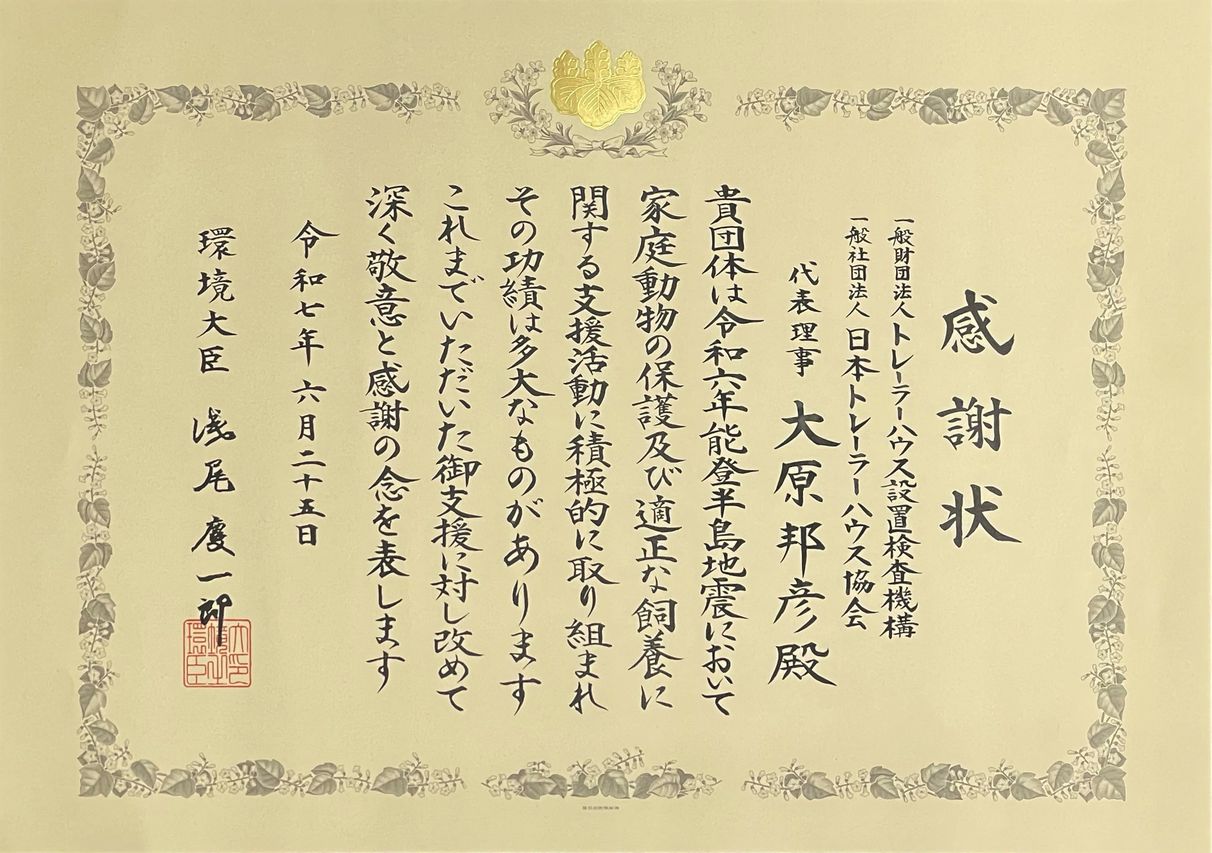 感謝状
一般財団法人トレーラーハウス設置検査機構
一般社団法人日本トレーラーハウス協会
代表理事 大原邦彦殿
貴団体は令和六年能登半島地震において
家庭動物の保護及び適正な飼養に
関する支援活動に積極的に取り組まれ
その功績は多大なものがあります
これまでいただいた御支援に対し改めて
深く敬意と感謝の念を表します
令和七年六月二十五日
環境大臣 浅尾慶一郎